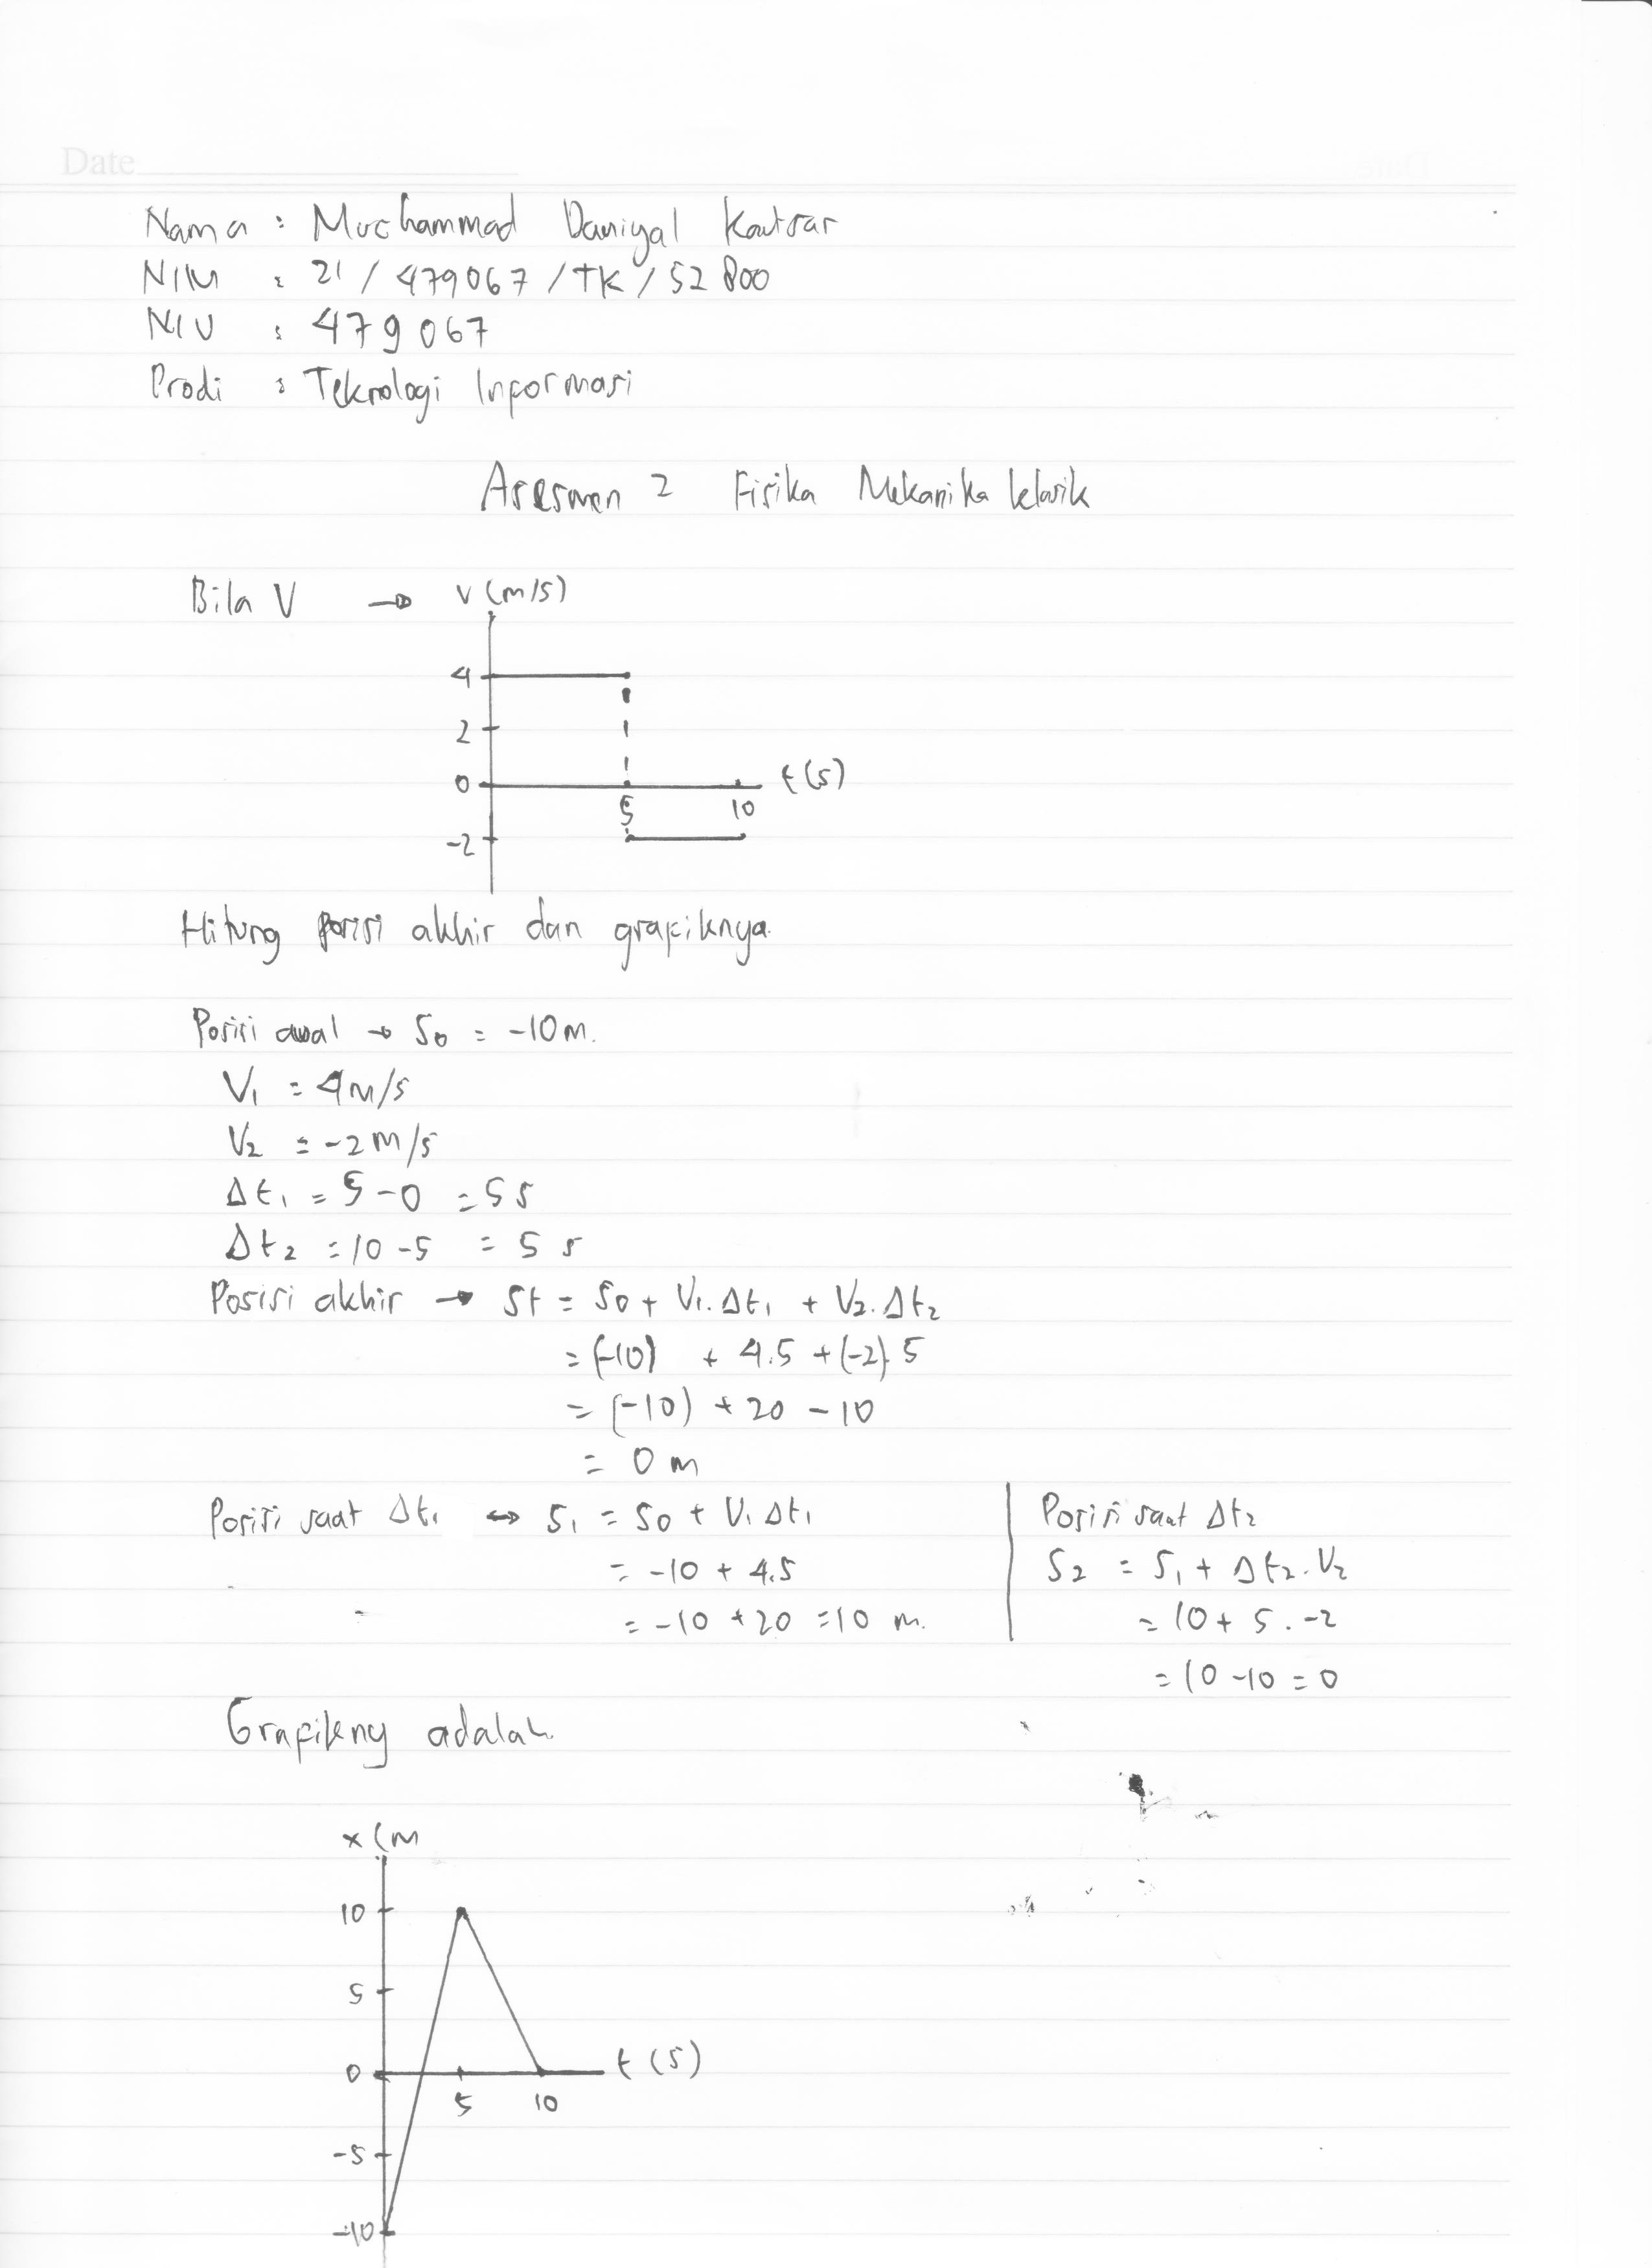 Date
Nama : Muchammad Daniyal Kautsar
NIM : 21 / 479067 / TK / 52800
NIU : 479067
Prodi : Teknologi Informasi
Asesmen 2 Fisika Mekanika klasik
Bila V → v (m/s)
4
2
0
t (s)
5 10
-2
Hitung posisi akhir dan grafiknya.
Posisi awal → S₀ = -10 m.
V₁ = 4 m/s
V₂ = -2 m/s
Δt₁ = 5 - 0 = 5 s
Δt₂ = 10 - 5 = 5 s
Posisi akhir → St = S₀ + V₁. Δt₁ + V₂. Δt₂
= (-10) + 4.5 + (-2). 5
= (-10) + 20 - 10
= 0 m
Posisi saat Δt₁ ↔ S₁ = S₀ + V₁ Δt₁
= -10 + 4.5
= -10 + 20 = 10 m.
Posisi saat Δt₂
S₂ = S₁ + Δt₂. V₂
= 10 + 5 . -2
= 10 - 10 = 0
Grafikny adalah
x (m
10
5
0
t (s)
5 10
-5
-10